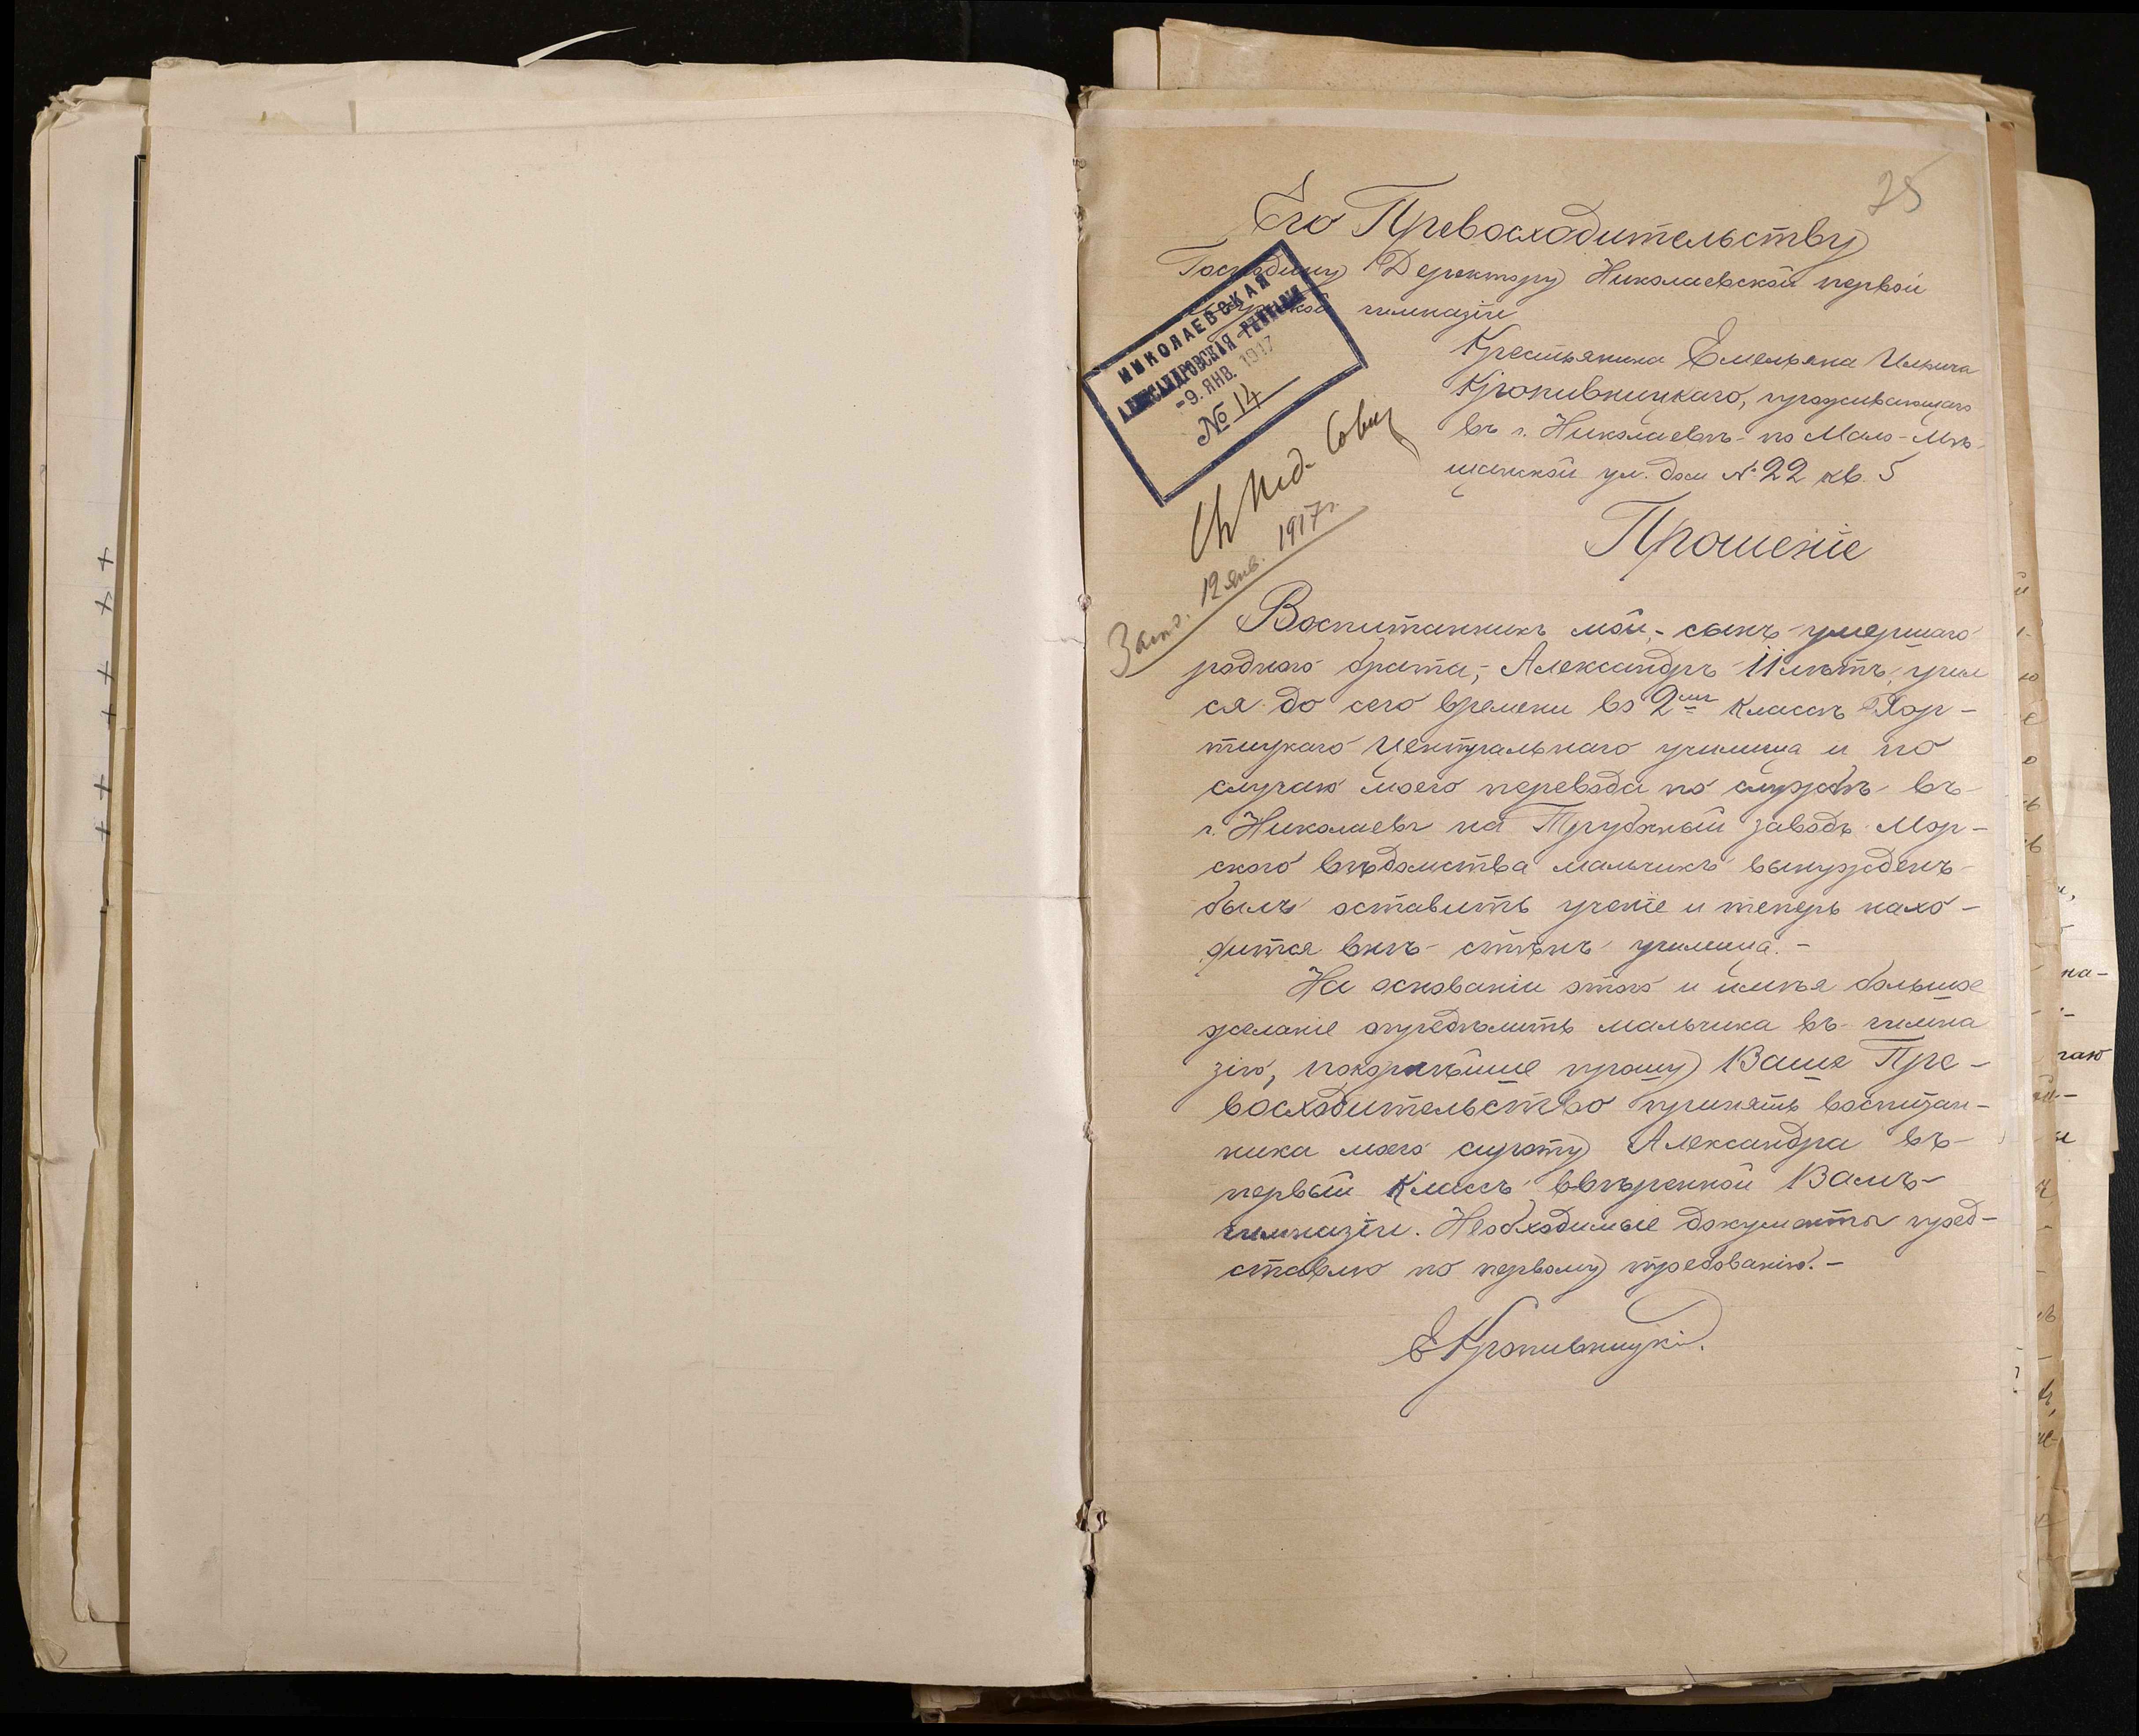 75
Его Превосходительству
Господину Директору Николаевской первой
Мужской гимназіи
НИКОЛАЕВСКАЯ
АЛЕКСАНДРОВСКАЯ ГИМНАЗІЯ
-9. ЯНВ. 1917
№ 14
Крестьянина Емельяна Ильича
Кропивницкаго, проживающаго
въ г. Николаевѣ по Мало-Мѣ-
щанской ул. дом №22 кв. 5
Въ Пед. Совѣт
12 янв. 1917 г.
Прошеніе
Воспитанникъ мой,- сынъ умершаго
родного брата,- Александръ 11 лѣтъ, учил
ся до сего времени во 2мъ классѣ Хор-
тицкаго центральнаго училища и по
случаю моего перевода по службѣ въ
г. Николаевъ на Трубочный заводъ Мор-
ского вѣдомства мальчикъ вынужденъ
былъ оставить ученіе и теперь нахо-
дится внѣ стѣнъ училища.-
На основаніи этого и имѣя большое
желаніе опредѣлить мальчика въ гимна
зію, покорнѣйше прошу Ваше Пре-
восходительство принять воспитан-
ника моего сироту Александра въ
первый классъ ввѣренной Вамъ
гимназіи. Необходимые документы пред-
ставлю по первому требованію.-
Е Кропивницкій.